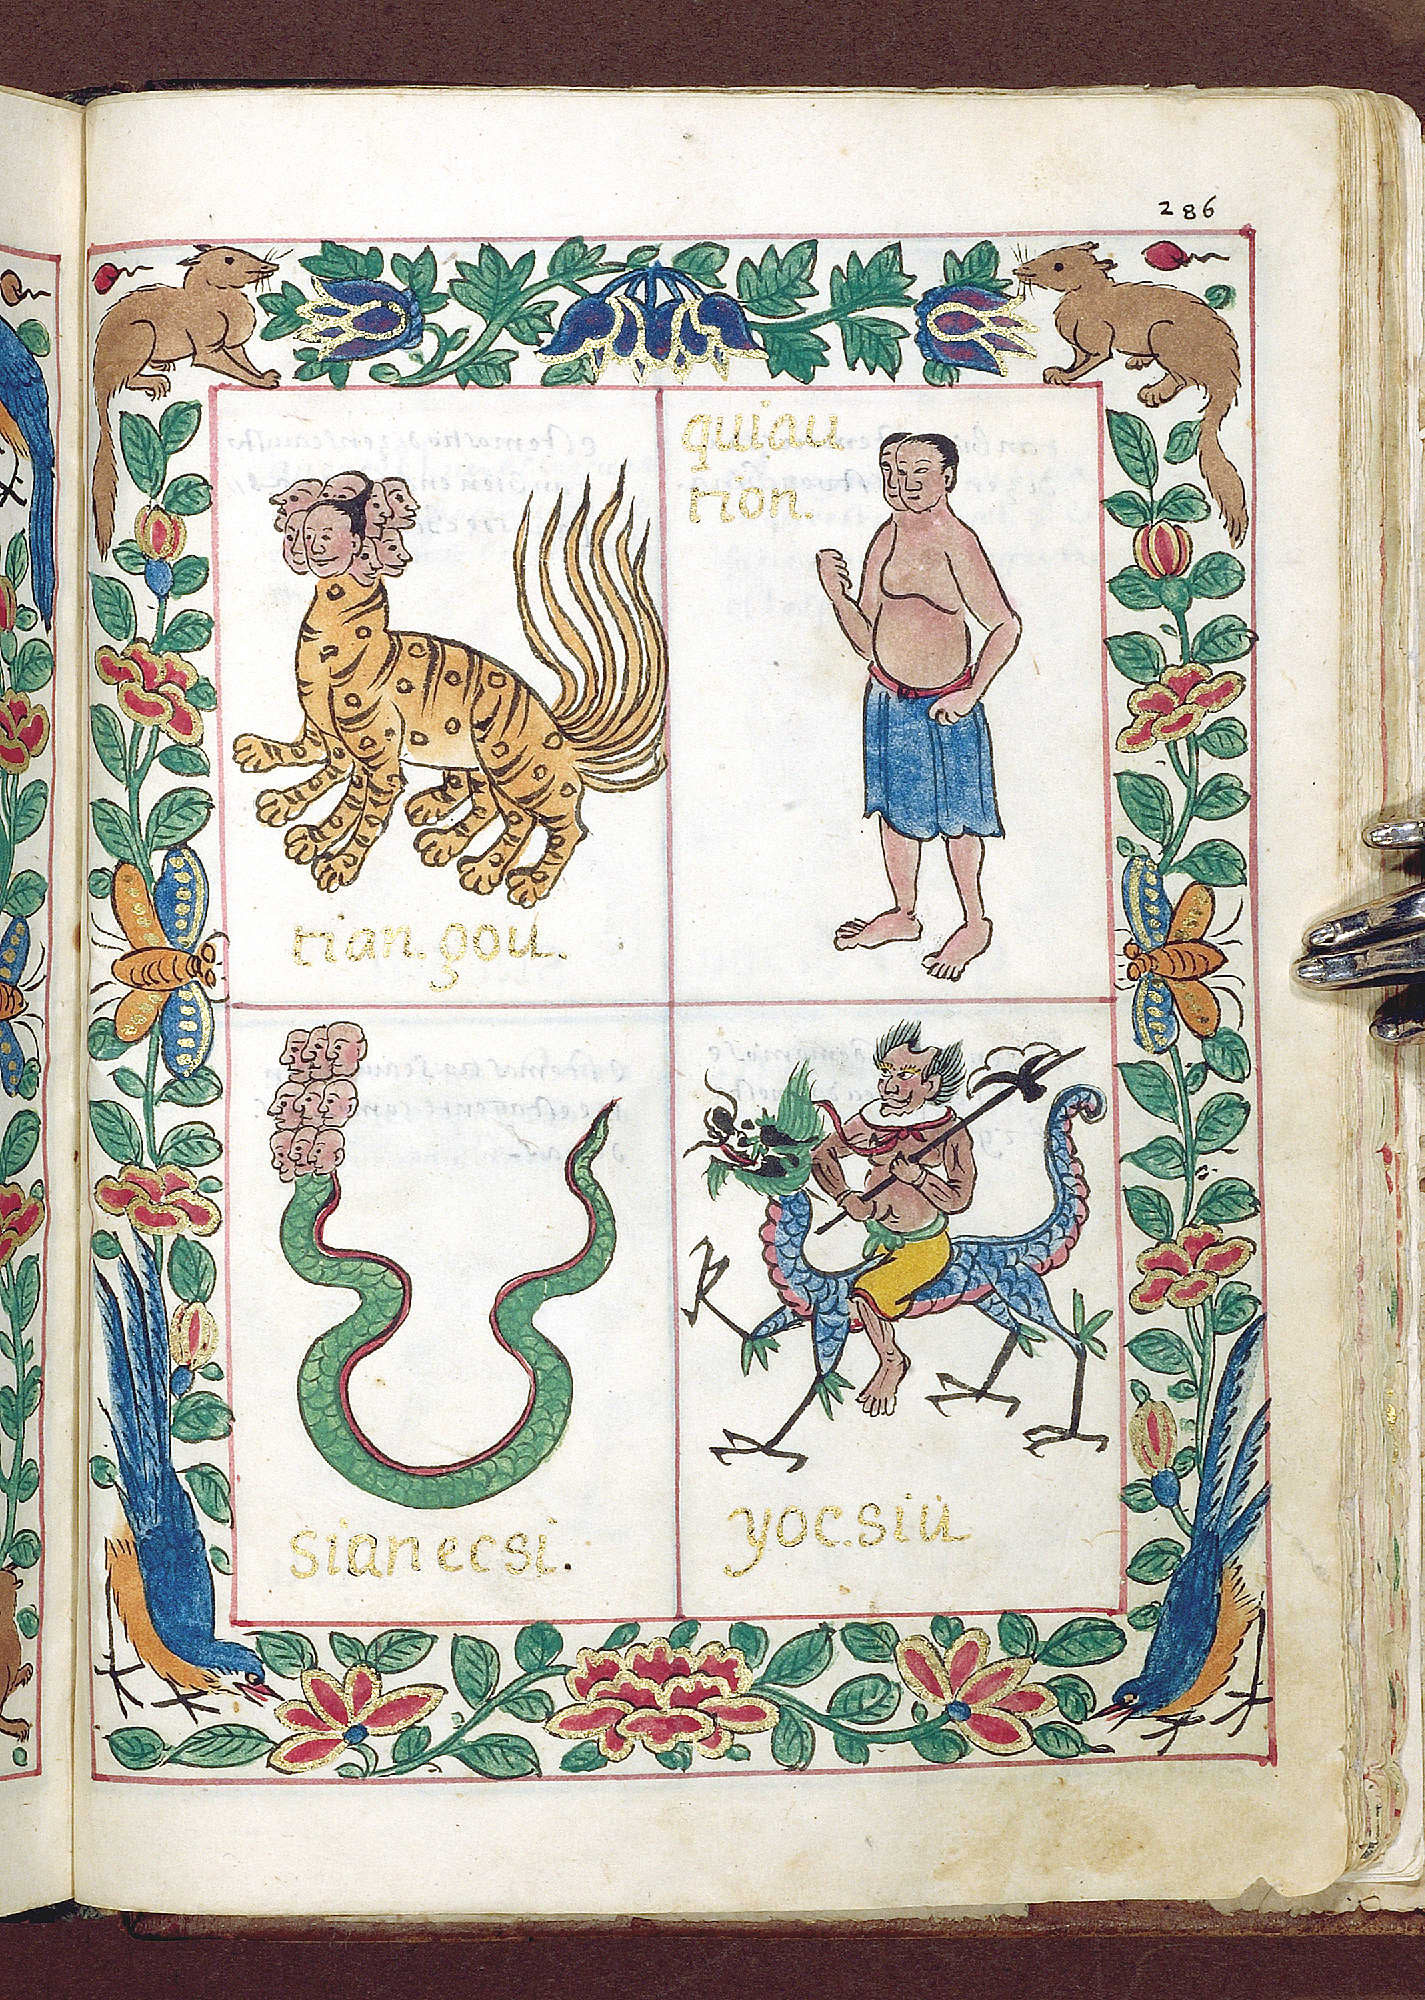 286
quiau
rion.
tian.gou.
sianecsi.
yoc.siu